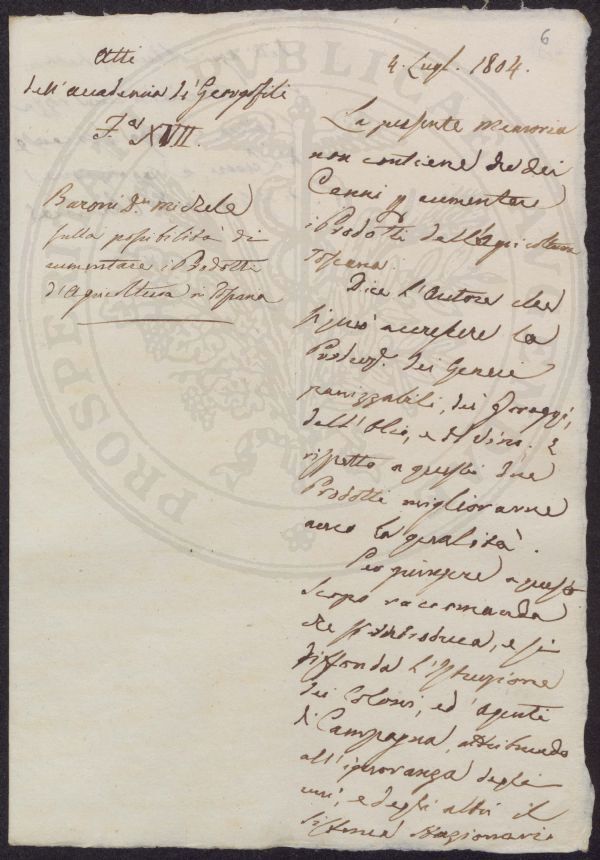 6
Atti
dell'accademia de' Georgofili
F.a XVII.
Baroni D.n Michele
sulla possibilità di
aumentare i Prodotti
d'Agricoltura in Toscana
4. Lugl. 1804.
La presente memoria
non contiene che dei
Cenni p aumentare
i Prodotti dell'Agricoltura
Toscana.
Dice l'Autore che
si può accrescere la
Produz. dei Generi
panizzabili, dei foraggi,
dell'Olio, e del Vino. E
rispetto a questi due
Prodotti migliorarne
anco la qualità.
Per giungere a questo
scopo raccomanda
che s'introduca, e si
diffonda l'Istruzione
dei Coloni, ed' agenti
di Campagna, attribuendo
all'ignoranza degli
uni, e degli altri il
sistema stazionario
PROSPE
PVBLICA